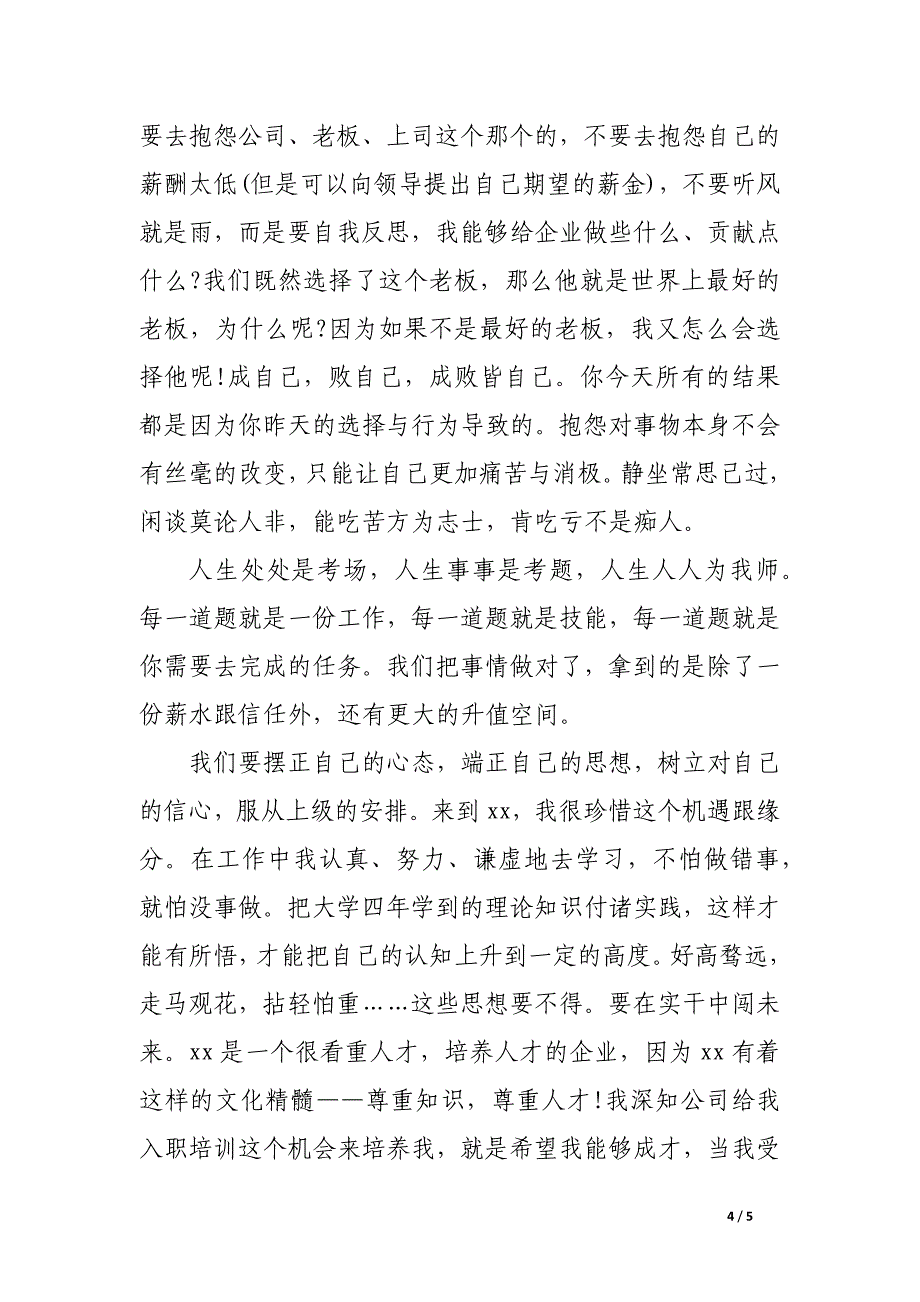 要去抱怨公司、老板、上司这个那个的，不要去抱怨自己的
薪酬太低(但是可以向领导提出自己期望的薪金)，不要听风
就是雨，而是要自我反思，我能够给企业做些什么、贡献点
什么?我们既然选择了这个老板，那么他就是世界上最好的
老板，为什么呢?因为如果不是最好的老板，我又怎么会选
择他呢!成自己，败自己，成败皆自己。你今天所有的结果
都是因为你昨天的选择与行为导致的。抱怨对事物本身不会
有丝毫的改变，只能让自己更加痛苦与消极。静坐常思己过，
闲谈莫论人非，能吃苦方为志士，肯吃亏不是痴人。
人生处处是考场，人生事事是考题，人生人人为我师。
每一道题就是一份工作，每一道题就是技能，每一道题就是
你需要去完成的任务。我们把事情做对了，拿到的是除了一
份薪水跟信任外，还有更大的升值空间。
我们要摆正自己的心态，端正自己的思想，树立对自己
的信心，服从上级的安排。来到 xx，我很珍惜这个机遇跟缘
分。在工作中我认真、努力、谦虚地去学习，不怕做错事，
就怕没事做。把大学四年学到的理论知识付诸实践，这样才
能有所悟，才能把自己的认知上升到一定的高度。好高骛远，
走马观花，拈轻怕重……这些思想要不得。要在实干中闯未
来。xx 是一个很看重人才，培养人才的企业，因为 xx 有着
这样的文化精髓——尊重知识，尊重人才!我深知公司给我
入职培训这个机会来培养我，就是希望我能够成才，当我受
4 / 5